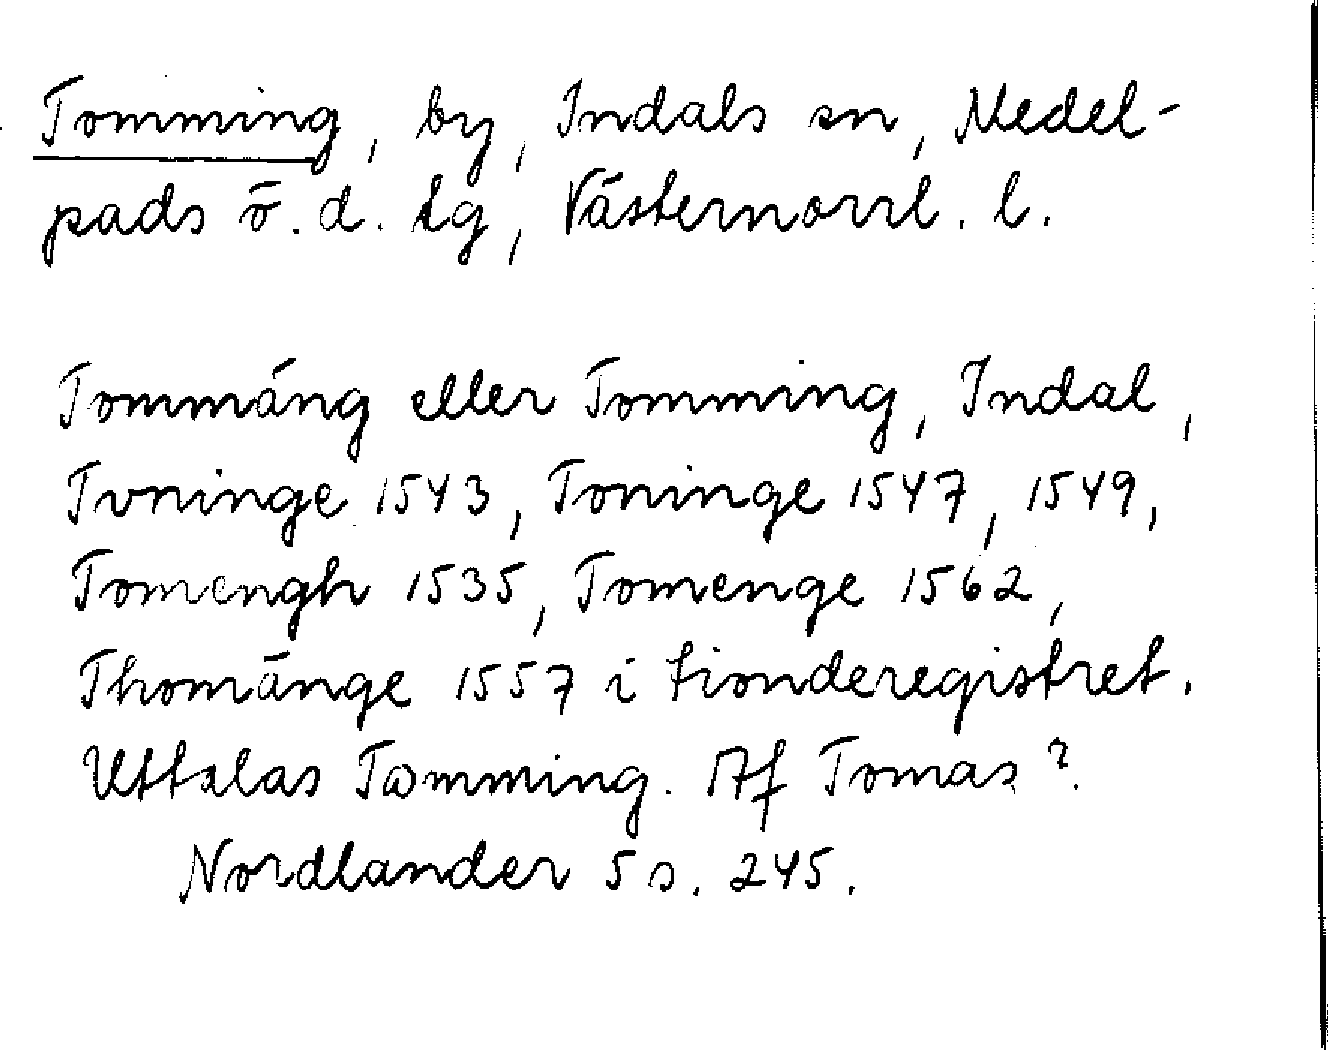 Tomming, by, Indals sn, Medel-
pads ö. d. tg, Västernorrl. l.
Tommäng eller Tomming, Indal,
Tvninge 1543, Toninge 1547, 1549,
Tomengh 1535, Tomenge 1562,
Thomänge 1557 i tionderegistret.
Uttalas Tomming. Af Tomas?
Nordlander 5 s. 245.